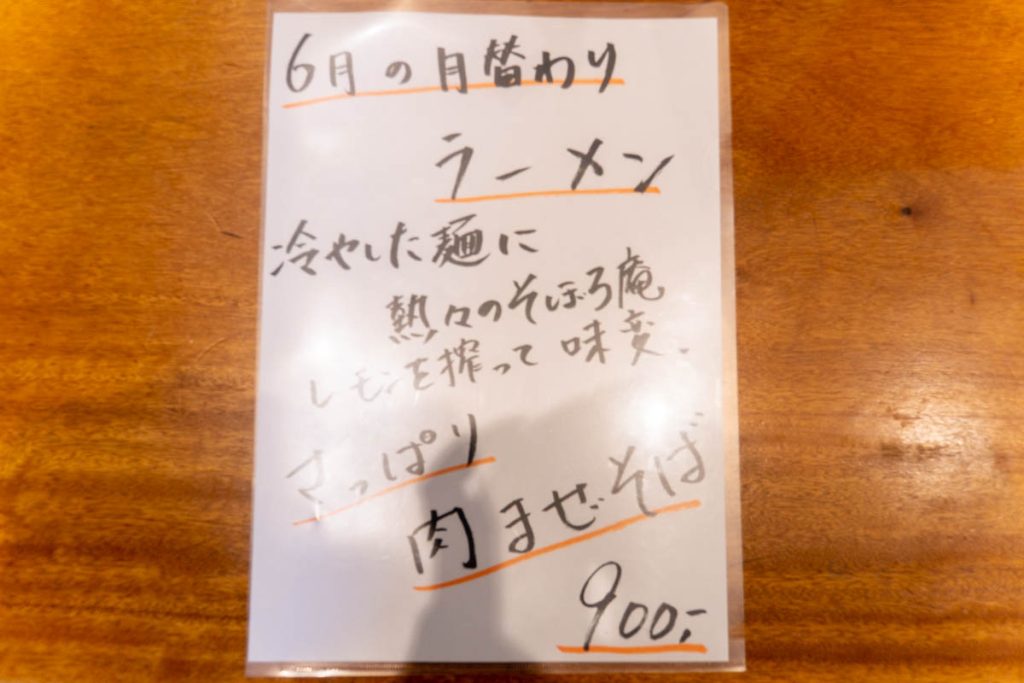 6月の月替わり
ラーメン
冷やした麺に
熱々のそぼろ庵
レモンを搾って味変、
さっぱり
肉まぜそば
900,-